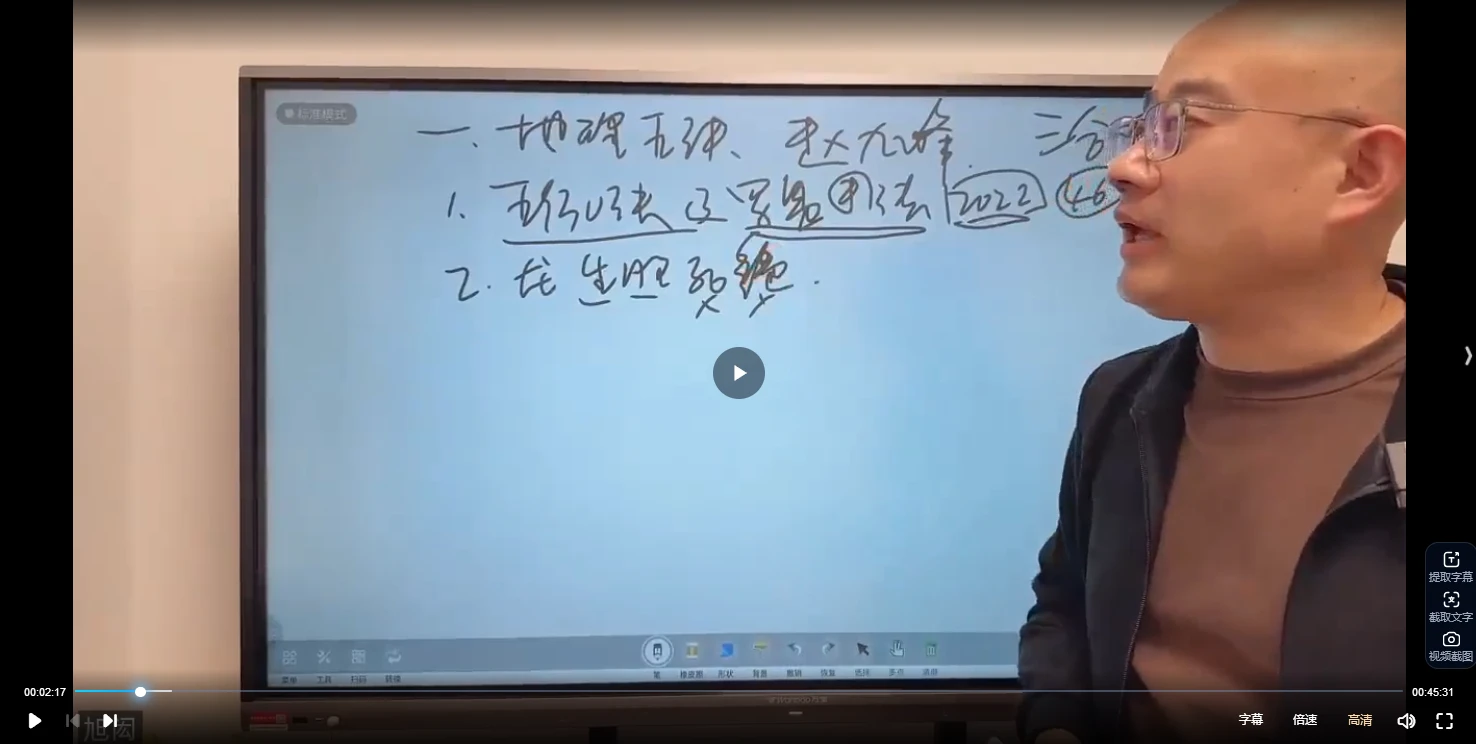 标准模式
一. 地理五诀、赵九峰. 三合
1. 五行以法 及 罗盘 用法 2022 46
2. 龙 生旺 弱 绝.
菜单 工具 扫码 转播 笔 橡皮擦 形状 背景 撤销 恢复 选择 多点 清页
提取字幕
截取文字
视频截图
00:02:17 00:45:31
旭闳
字幕 倍速 高清